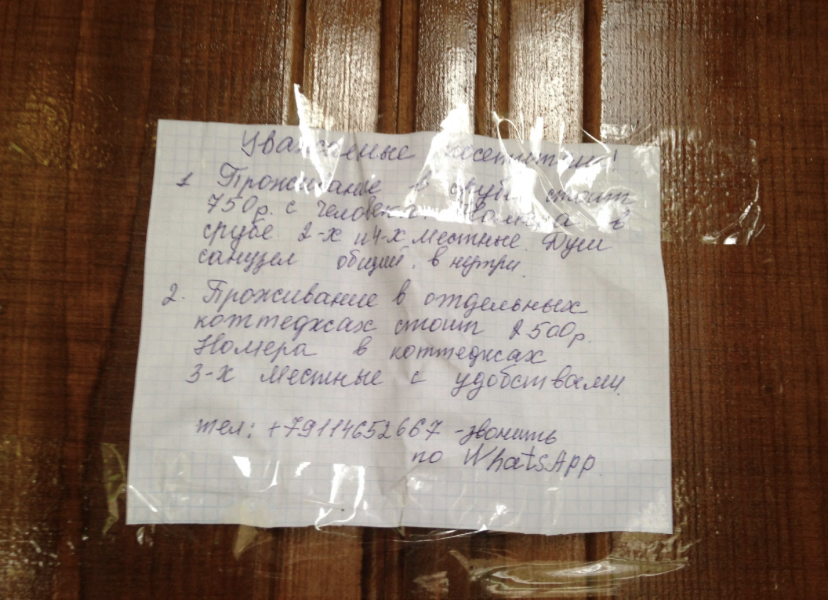 Уважаемые посетители!
1. Проживание в срубе стоит
750р. с человека. Номера в
срубе 2-х и 4-х местные. Душ
санузел общий, внутри.
2. Проживание в отдельных
коттеджах стоит 2500р.
Номера в коттеджах
3-х местные с удобствами.
тел: +79114652667 - звонить
по WhatsApp.